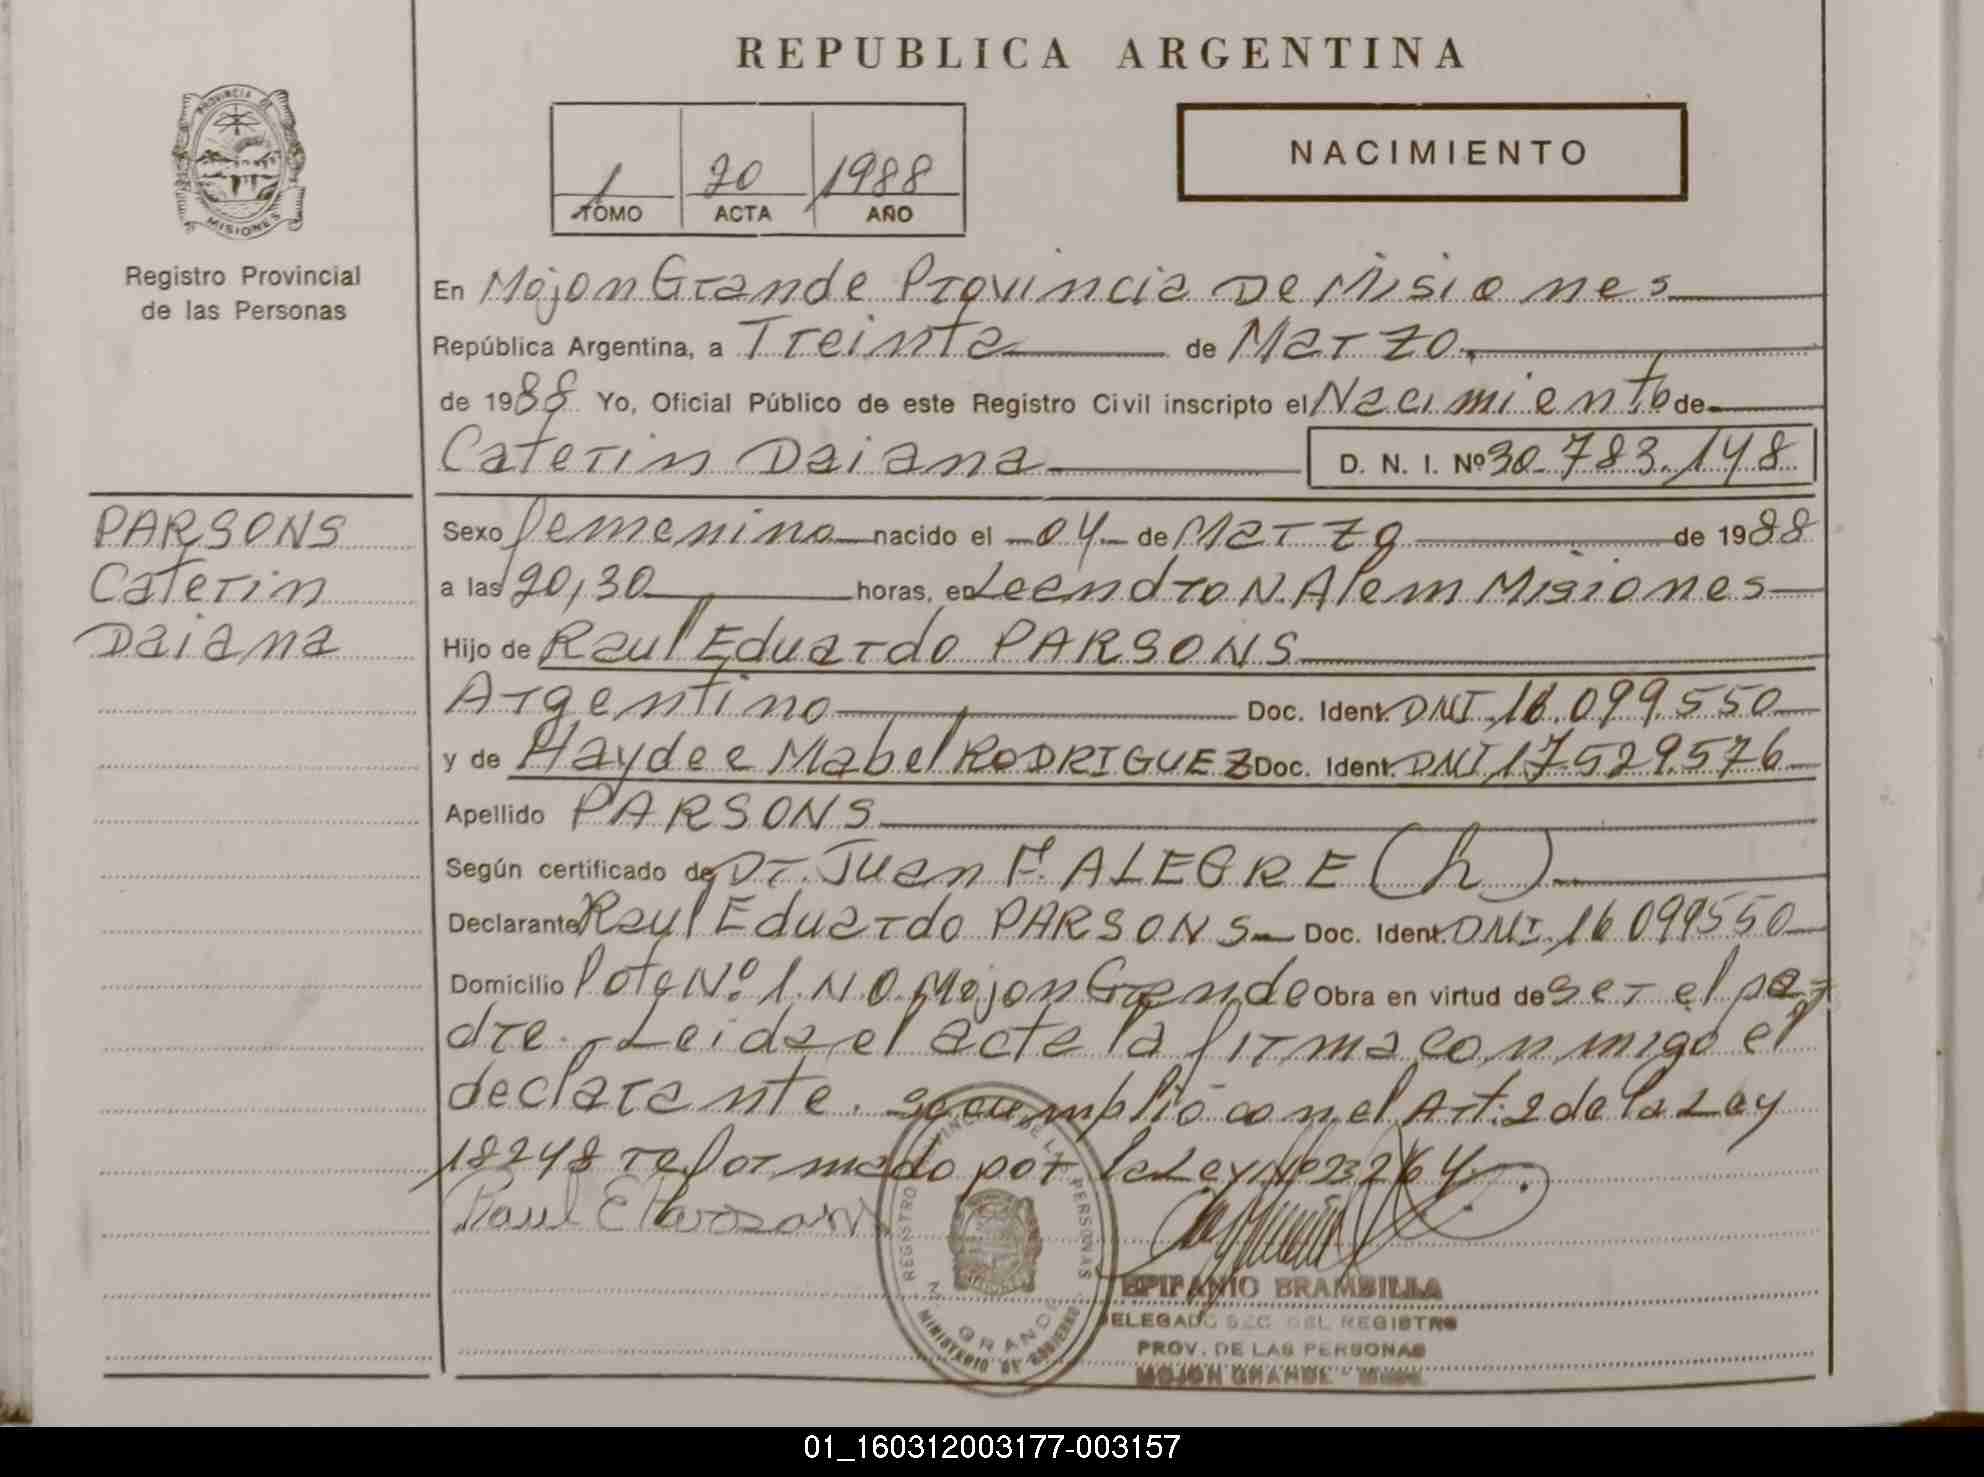 REPUBLICA ARGENTINA
PROVINCIA DE
MISIONES
Registro Provincial
de las Personas
1 20 1988
TOMO ACTA AÑO
NACIMIENTO
En Mojon Grande Provincia De Misiones
República Argentina, a Treinta de Marzo.
de 1988 Yo, Oficial Público de este Registro Civil inscripto el Nacimiento de
Caterin Daiana D. N. I. Nº 30.783.148
PARSONS
Caterin
Daiana
Sexo femenino nacido el 04 de Marzo de 1988
a las 20,30 horas, en Leandro N. Alem Misiones
Hijo de Raul Eduardo PARSONS
Argentino Doc. Ident. DNI. 16.099.550
y de Haydee Mabel RODRIGUEZ Doc. Ident. DNI 17529.576
Apellido PARSONS
Según certificado de Dr. Juan F. ALEGRE (h)
Declarante Raul Eduardo PARSONS Doc. Ident. DNI. 16099550
Domicilio lote Nº 1. N.O. Mojon Grande Obra en virtud de ser el pa-
dre. Leida el acta la firma conmigo el
declarante. se cumplió con el Art. 2 de la Ley
18248 reformado por la Ley Nº 23264
Raul E Parsons
REGISTRO PROVINCIAL DE LAS PERSONAS
GRANDE
MINISTERIO DE GOBIERNO
EPIFANIO BRAMBILLA
DELEGADO SEC. DEL REGISTRO
PROV. DE LAS PERSONAS
MOJON GRANDE
01_160312003177-003157